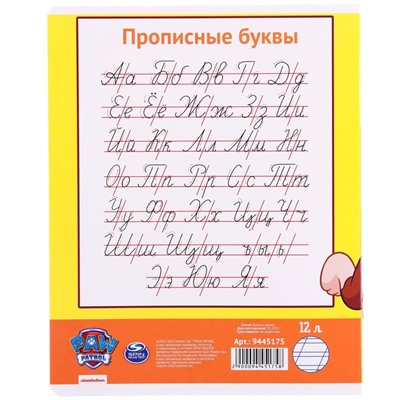 Прописные буквы
Аа Бб Вв Гг Дд
Ее Ёё Жж Зз Ии
Йй Кк Лл Мм Нн
Оо Пп Рр Сс Тт
Уу Фф Хх Цц Чч
Шш Щщ ъ ы ь
Ээ Юю Яя
12 л.
PAW
PATROL
SPIN
MASTER
Арт.: 9445175
2900094451758
nickelodeon